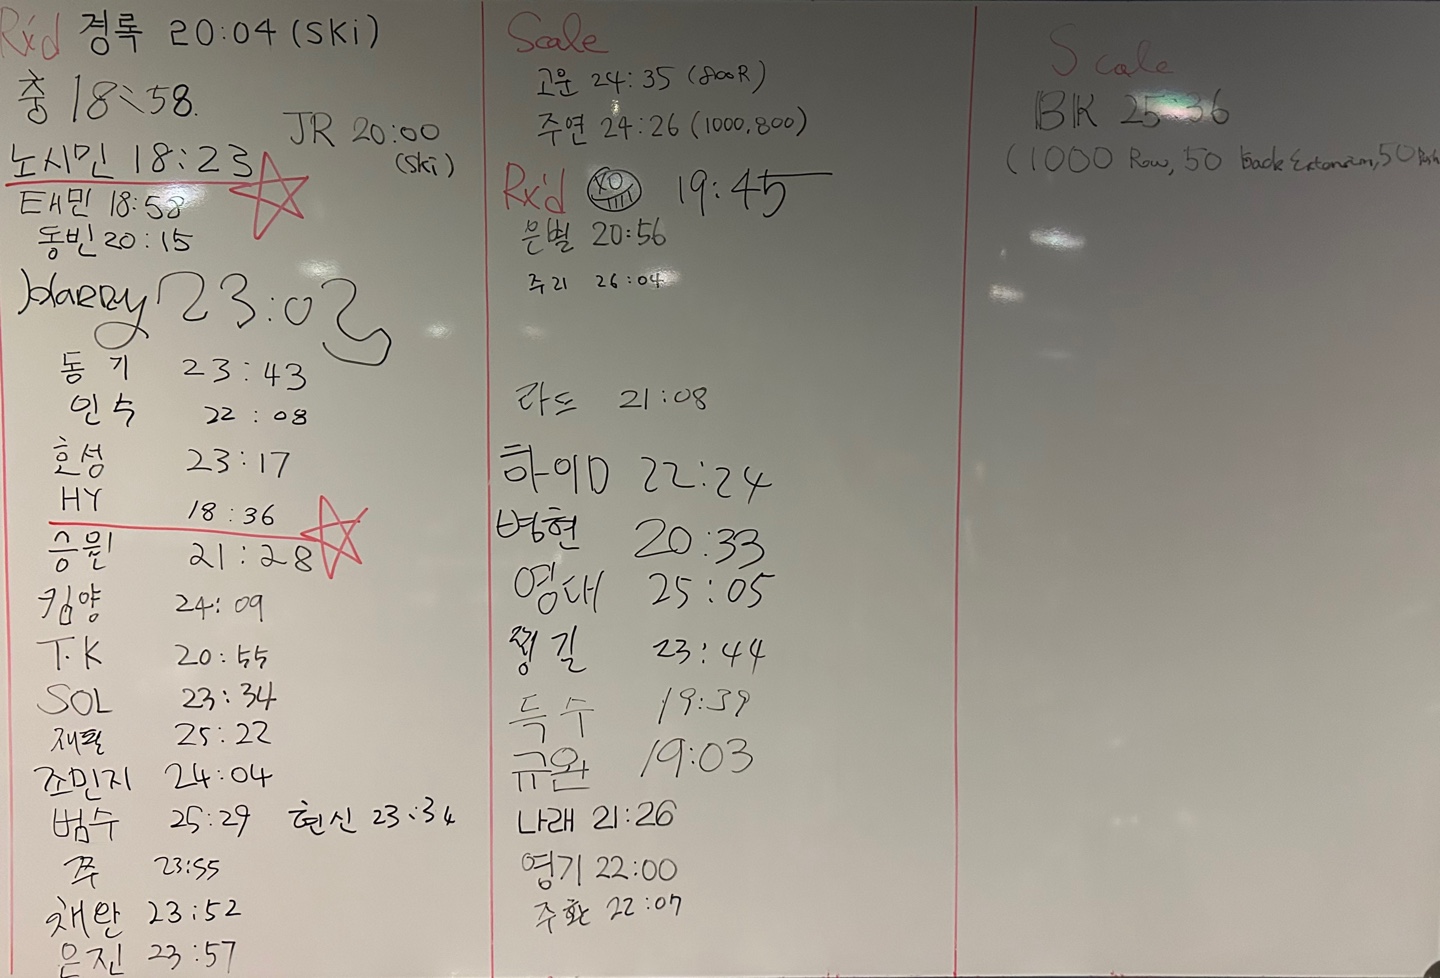 Rx'd 경록 20:04 (SKi)
충 18:58
JR 20:00
(Ski)
노시민 18:23
태민 18:58
동빈 20:15
HARRy 23:02
동기 23:43
인수 22:08
호성 23:17
HY 18:36
승원 21:28
킴양 24:09
T.K 20:55
SOL 23:34
재필 25:22
조민지 24:04
범수 25:29 현신 23:34
쭈 23:55
채완 23:52
은진 23:57
Scale
고운 24:35 (800R)
주연 24:26 (1000,800)
Rx'd YO 19:45
은별 20:56
주리 26:04
라드 21:08
하이D 22:24
병현 20:33
영대 25:05
길 23:44
득수 19:39
규완 19:03
나래 21:26
영기 22:00
주환 22:07
Scale
BK 25:36
(1000 Row, 50 back Extension, 50